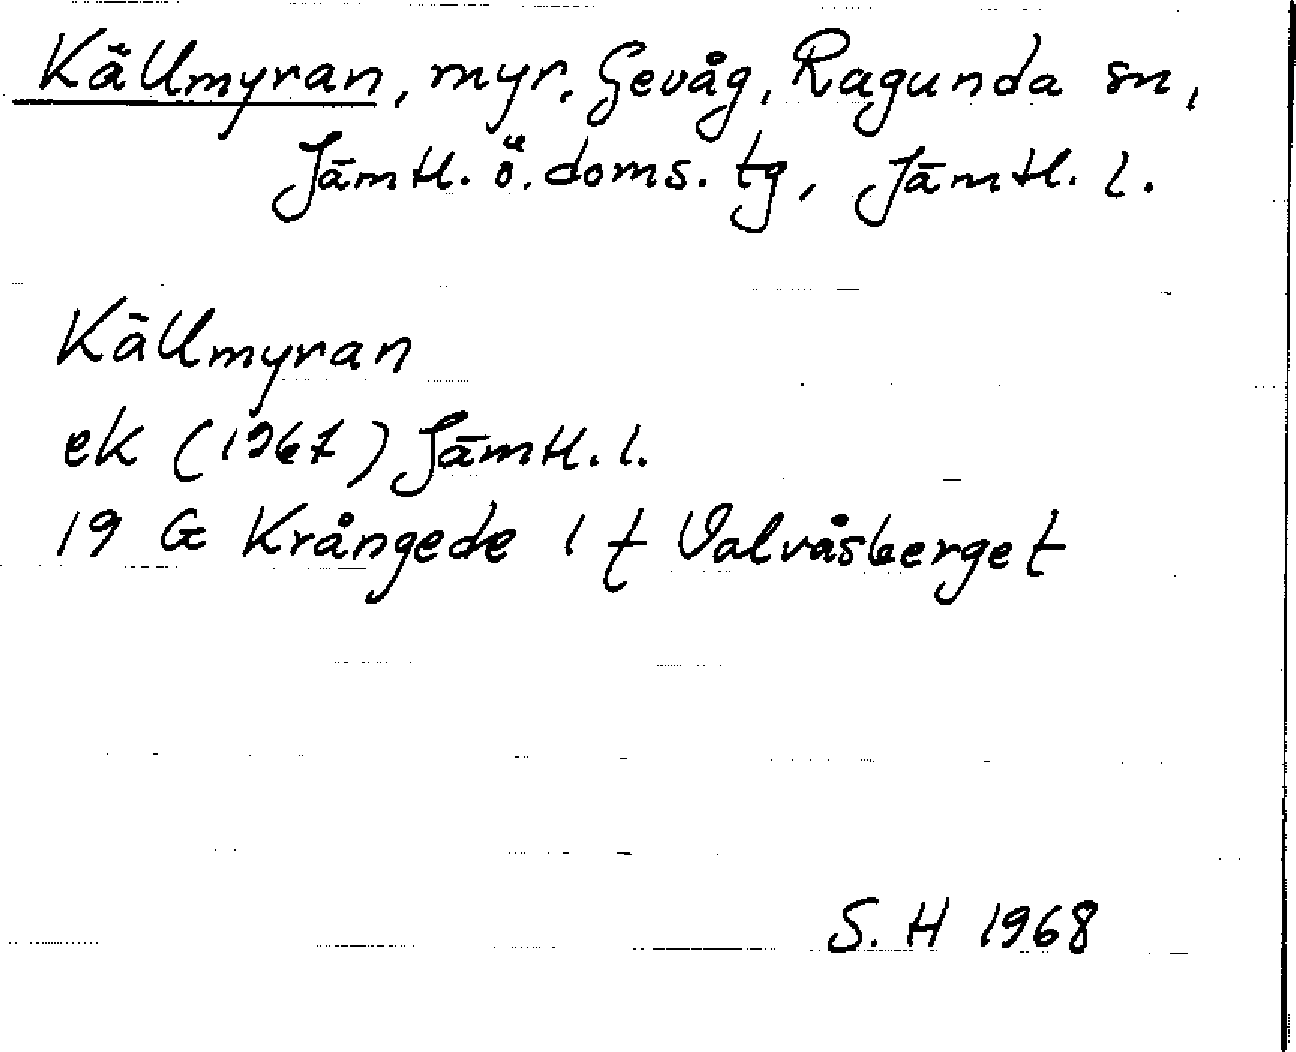 Källmyran, myr. Gevåg, Ragunda sn,
Jämtl. ö. doms. tg, Jämtl. l.
Källmyran
ek (1967) Jämtl. l.
19 G Krångede 1 f Valvåsberget
S. H 1968